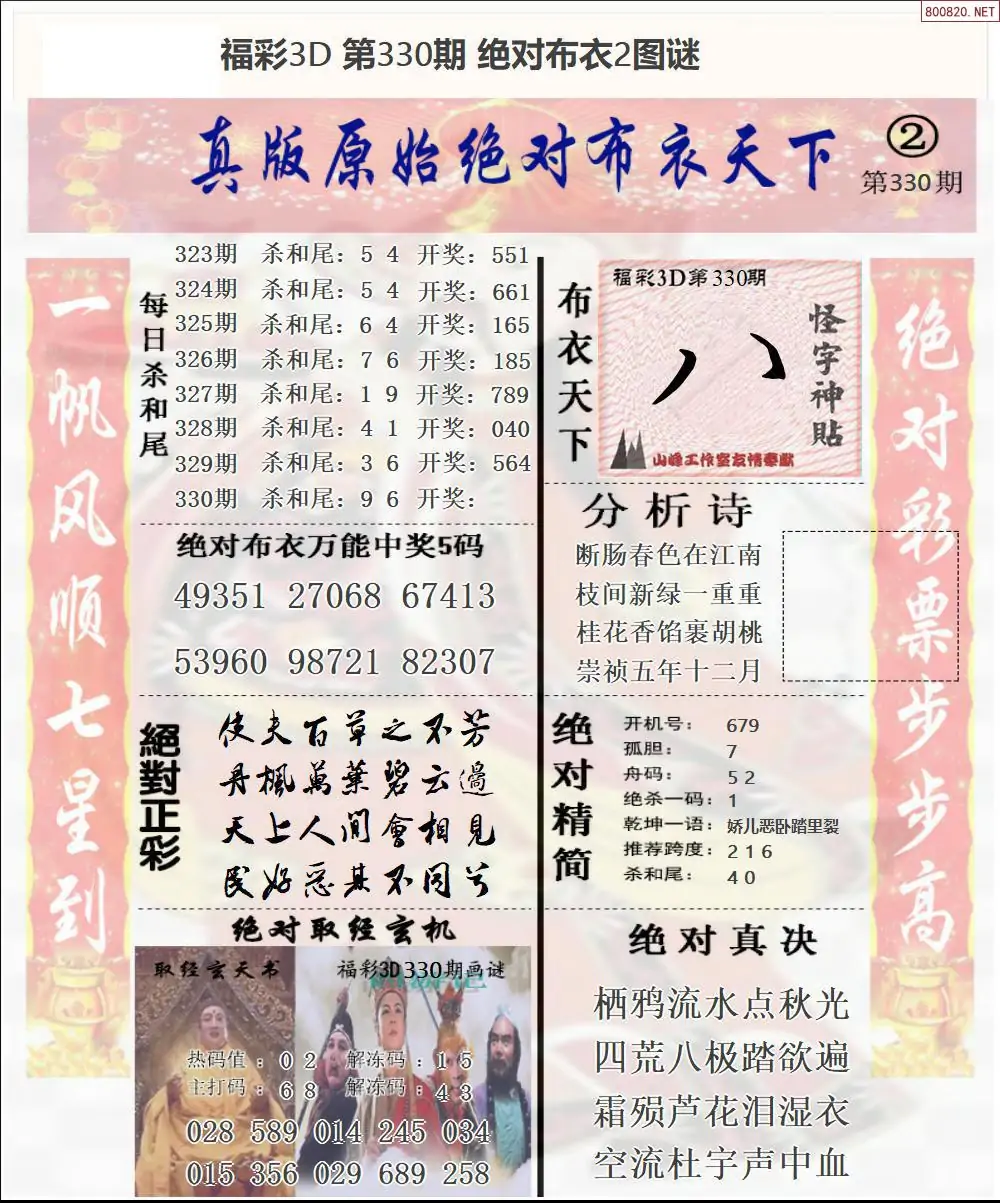 800820.NET
福彩3D 第330期 绝对布衣2图谜
真版原始绝对布衣天下
②
第330期
一帆风顺七星到
每日杀和尾
323期 杀和尾：5 4 开奖：551
324期 杀和尾：5 4 开奖：661
325期 杀和尾：6 4 开奖：165
326期 杀和尾：7 6 开奖：185
327期 杀和尾：1 9 开奖：789
328期 杀和尾：4 1 开奖：040
329期 杀和尾：3 6 开奖：564
330期 杀和尾：9 6 开奖：
绝对布衣万能中奖5码
49351 27068 67413
53960 98721 82307
絕對正彩
使夫百草之不芳
丹楓萬葉碧云邊
天上人间會相見
民好恶其不同兮
绝对取经玄机
取经玄天书
福彩3D330期画谜
热码值：0 2 解冻码：1 5
主打码：6 8 解冻码：4 3
028 589 014 245 034
015 356 029 689 258
布衣天下
福彩3D第330期
八
怪字神貼
山峰工作室友情奉献
分析诗
断肠春色在江南
枝间新绿一重重
桂花香馅裹胡桃
崇祯五年十二月
绝对精简
开机号：679
孤胆：7
舟码：5 2
绝杀一码：1
乾坤一语：娇儿恶卧踏里裂
推荐跨度：2 1 6
杀和尾：4 0
绝对真决
栖鸦流水点秋光
四荒八极踏欲遍
霜殒芦花泪湿衣
空流杜宇声中血
绝对彩票步步高